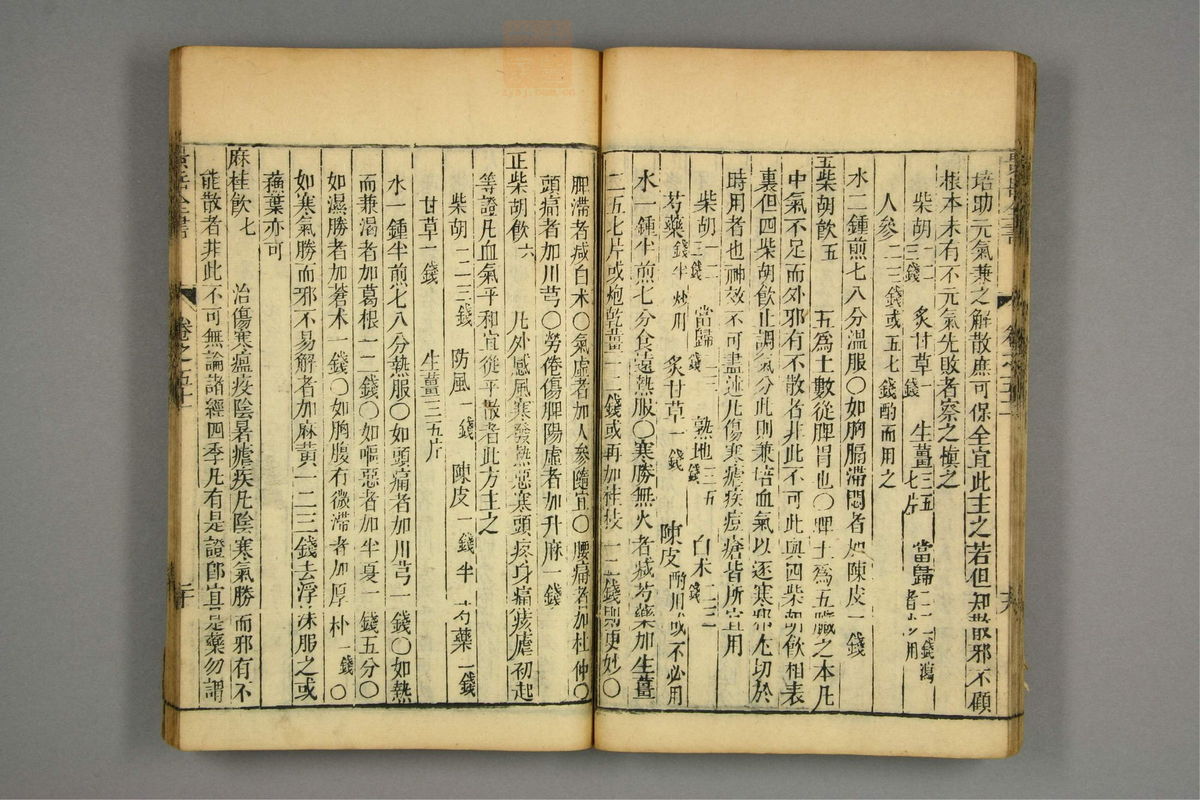 培助元氣兼之解散庶可保全宜此主之若但知散邪不顧
根本未有不元氣先敗者察之慎之
柴胡一二三錢 炙甘草一錢 生薑三五七片 當歸二三錢瀉者少用
人參二三錢或五七錢酌而用之
水二鍾煎七八分溫服○如胸膈滯悶者加陳皮一錢
五柴胡飲五 五爲土數從脾胃也○脾土爲五臟之本凡
中氣不足而外邪有不散者非此不可此與四柴胡飲相表
裏但四柴胡飲止調氣分此則兼培血氣以逐寒邪尤切於
時用者也神效不可盡述凡傷寒瘧疾痘瘡皆所宜用
柴胡一二三錢 當歸二三錢 熟地三五錢 白朮二三錢
芍藥錢半炒用 炙甘草一錢 陳皮酌用或不必用
水一鍾半煎七分食遠熱服○寒勝無火者减芍藥加生薑
三五七片或炮乾薑一二錢或再加桂枝一二錢則更妙○
脾滯者减白朮○氣虛者加人參隨宜○腰痛者加杜仲○
頭痛者加川芎○勞倦傷脾陽虛者加升麻一錢
正柴胡飲六 凡外感風寒發熱惡寒頭疼身痛痎瘧初起
等證凡血氣平和宜從平散者此方主之
柴胡一二三錢 防風一錢 陳皮一錢半 芍藥二錢
甘草一錢 生薑三五片
水一鍾半煎七八分熱服○如頭痛者加川芎一錢○如熱
而兼渴者加葛根一二錢○如嘔惡者加半夏一錢五分○
如濕勝者加蒼朮一錢○如胸腹有微滯者加厚朴一錢○
如寒氣勝而邪不易解者加麻黃一二三錢去浮沫服之或
蘇葉亦可
麻桂飲七 治傷寒瘟疫陰暑瘧疾凡陰寒氣勝而邪有不
能散者非此不可無論諸經四季凡有是證卽宜是藥勿謂
景岳全書 卷之五十一 二十